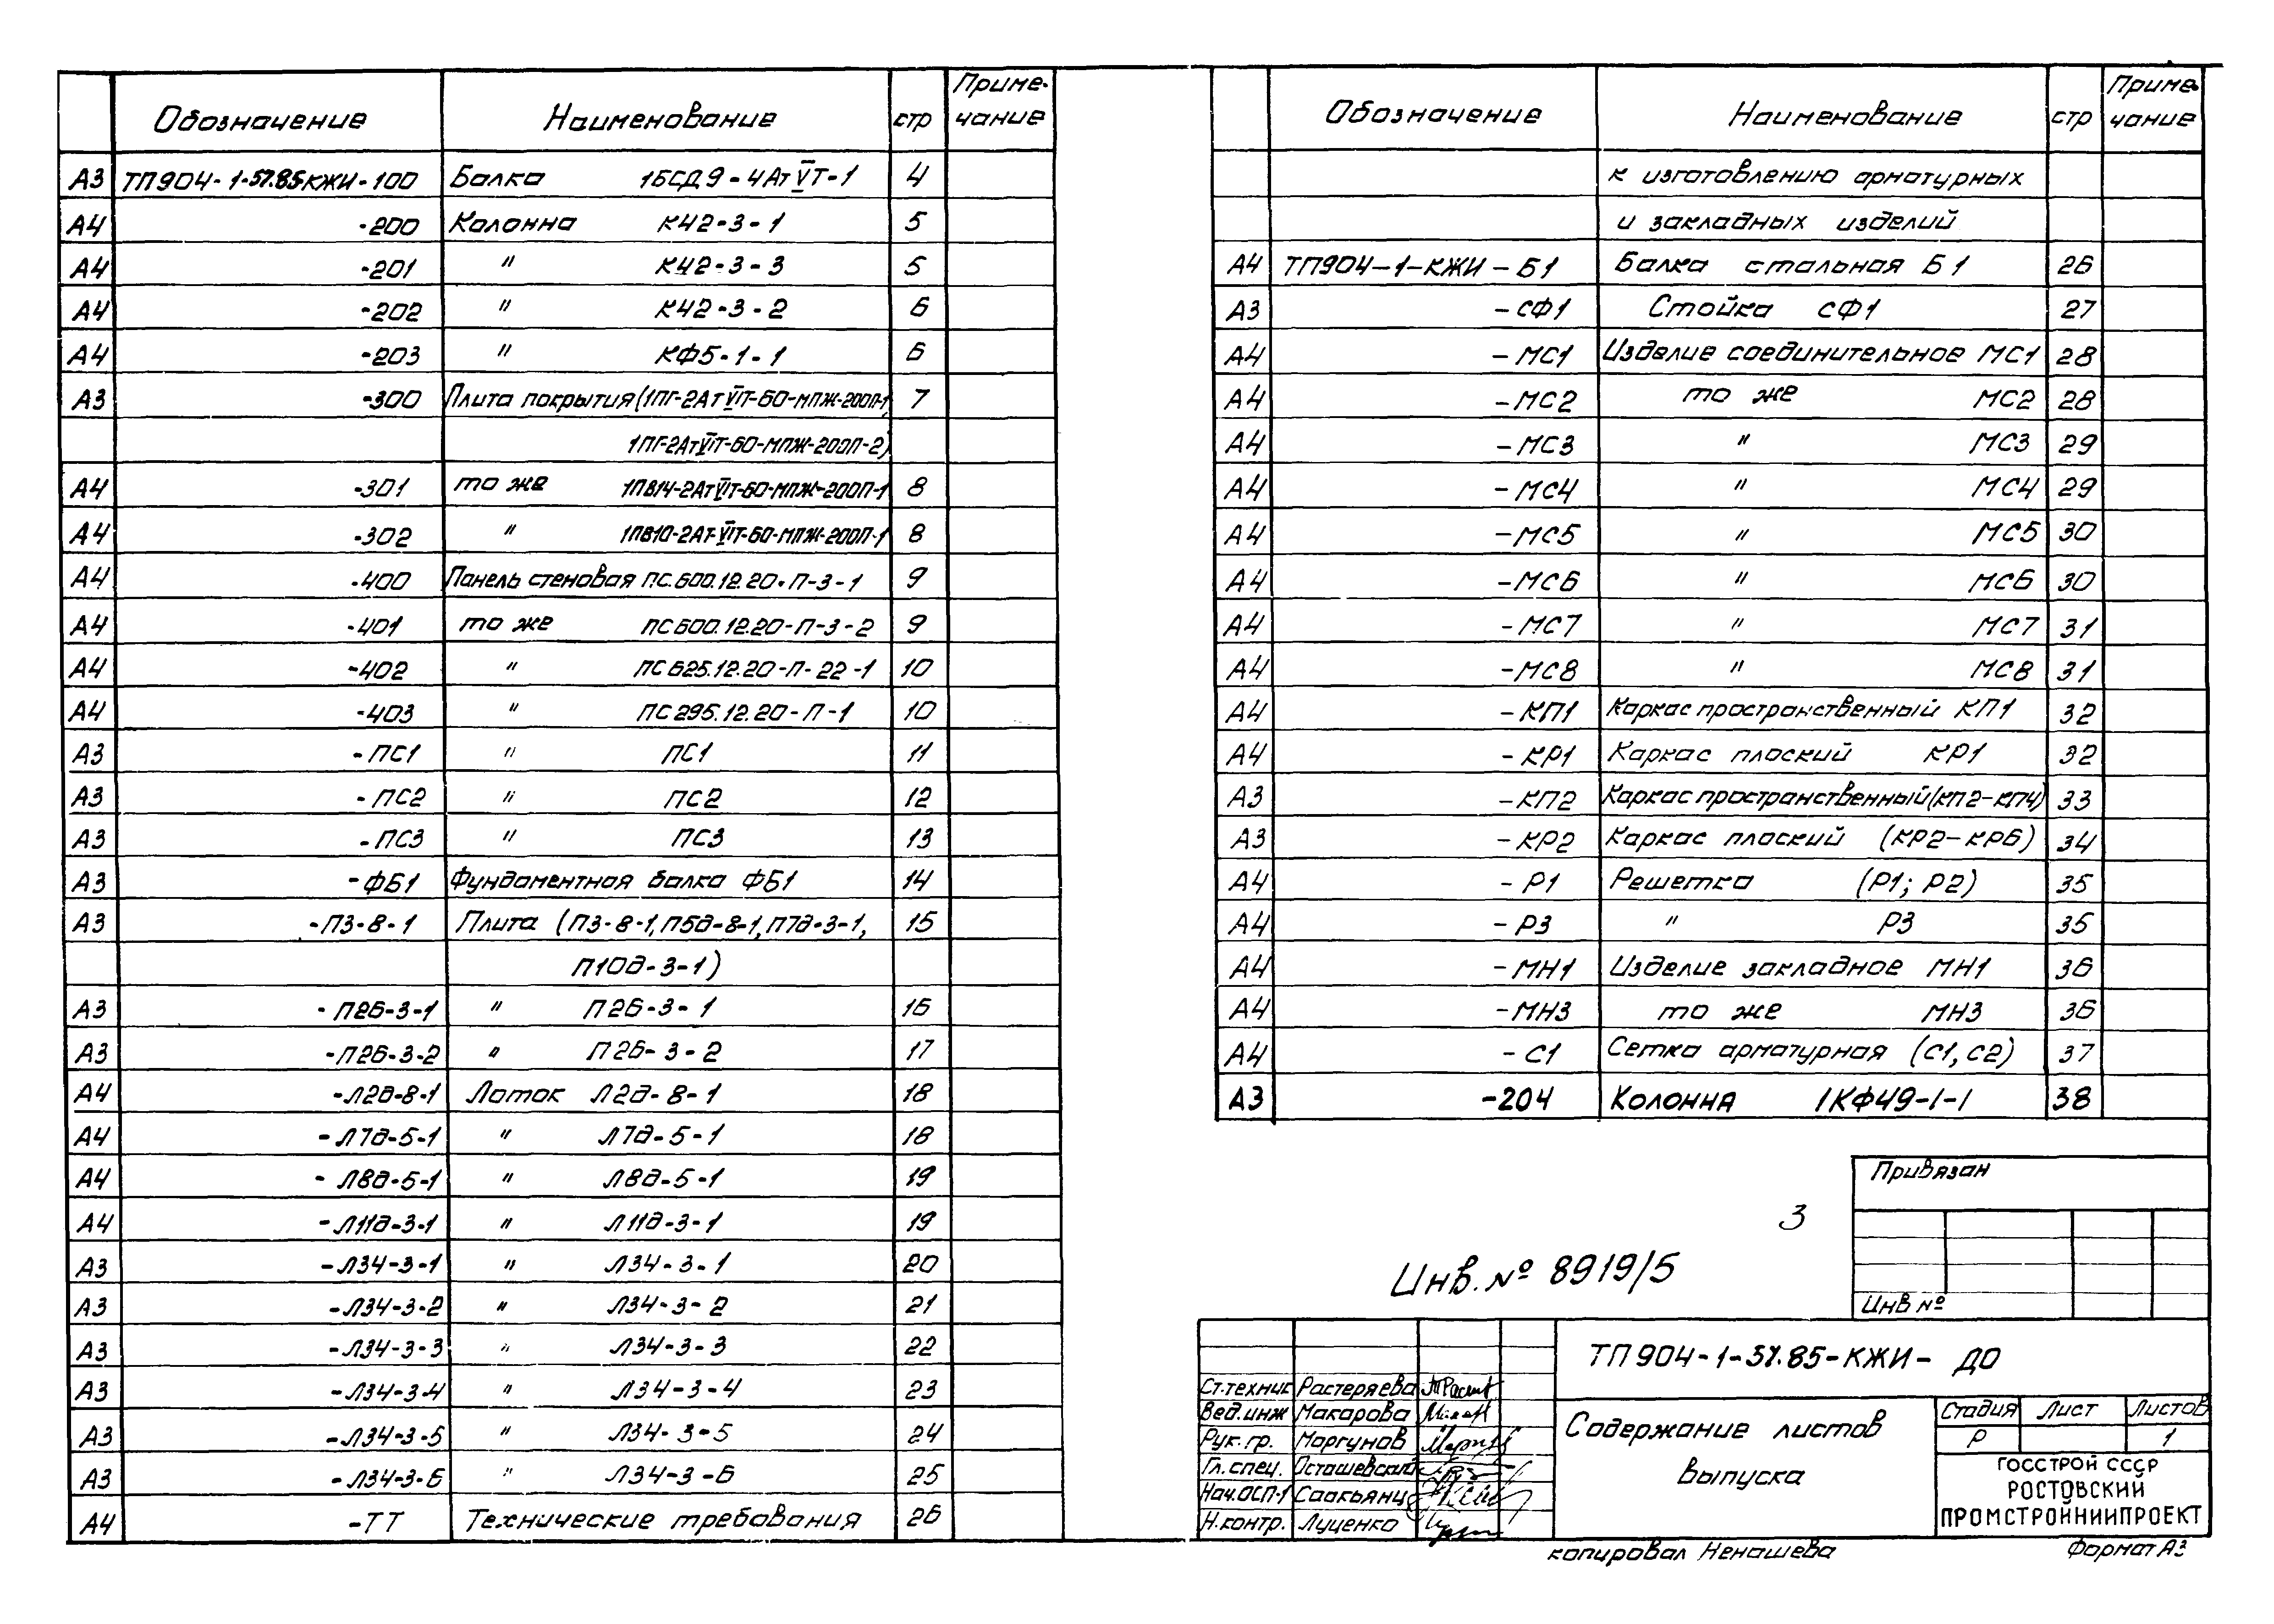 Обозначение Наименование стр Приме-
чание
А3 ТП904-1-57.85КЖИ-100 Балка 1БСД9-4АтVТ-1 4
А4 -200 Колонна К42-3-1 5
А4 -201 " К42-3-3 5
А4 -202 " К42-3-2 6
А4 -203 " КФ5-1-1 6
А3 -300 Плита покрытия(1ПГ-2АтVIТ-60-МПЖ-200П-1, 7
1ПГ-2АтVIТ-60-МПЖ-200П-2)
А4 -301 то же 1ПВ14-2АтVIТ-60-МПЖ-200П-1 8
А4 -302 " 1ПВ10-2АтVIТ-60-МПЖ-200П-1 8
А4 -400 Панель стеновая ПС.600.12.20-П-3-1 9
А4 -401 то же ПС600.12.20-П-3-2 9
А4 -402 " ПС625.12.20-П-22-1 10
А4 -403 " ПС295.12.20-П-1 10
А3 -ПС1 " ПС1 11
А3 -ПС2 " ПС2 12
А3 -ПС3 " ПС3 13
А3 -ФБ1 Фундаментная балка ФБ1 14
А3 -П3-8-1 Плита (П3-8-1, П5д-8-1, П7д-3-1, 15
П10д-3-1)
А3 -П26-3-1 " П26-3-1 16
А3 -П26-3-2 " П26-3-2 17
А4 -Л2д-8-1 Лоток Л2д-8-1 18
А4 -Л7д-5-1 " Л7д-5-1 18
А4 -Л8д-5-1 " Л8д-5-1 19
А4 -Л11д-3-1 " Л11д-3-1 19
А3 -Л34-3-1 " Л34-3-1 20
А3 -Л34-3-2 " Л34-3-2 21
А3 -Л34-3-3 " Л34-3-3 22
А3 -Л34-3-4 " Л34-3-4 23
А3 -Л34-3-5 " Л34-3-5 24
А3 -Л34-3-6 " Л34-3-6 25
А4 -ТТ Технические требования 26
Обозначение Наименование стр Приме-
чание
к изготовлению арматурных
и закладных изделий
А4 ТП904-1-КЖИ-Б1 Балка стальная Б1 26
А3 -СФ1 Стойка СФ1 27
А4 -МС1 Изделие соединительное МС1 28
А4 -МС2 то же МС2 28
А4 -МС3 " МС3 29
А4 -МС4 " МС4 29
А4 -МС5 " МС5 30
А4 -МС6 " МС6 30
А4 -МС7 " МС7 31
А4 -МС8 " МС8 31
А4 -КП1 Каркас пространственный КП1 32
А4 -КР1 Каркас плоский КР1 32
А3 -КП2 Каркас пространственный(КП2-КП4) 33
А3 -КР2 Каркас плоский (КР2-КР6) 34
А4 -Р1 Решетка (Р1; Р2) 35
А4 -Р3 " Р3 35
А4 -МН1 Изделие закладное МН1 36
А4 -МН3 то же МН3 36
А4 -С1 Сетка арматурная (С1, С2) 37
А3 -204 Колонна 1КФ49-1-1 38
Привязан
3
Инв. № 8919/5
Инв №
ТП904-1-57.85-КЖИ- ДО
Ст.техник Растеряева
Вед.инж Макарова
Рук.гр. Моргунов
Гл.спец. Осташевский
Нач.ОСП-1 Саакьянц
Н.контр. Луценко
Содержание листов
выпуска
Стадия Лист Листов
Р 1
ГОССТРОЙ СССР
РОСТОВСКИЙ
ПРОМСТРОЙНИИПРОЕКТ
копировал Ненашева Формат А3